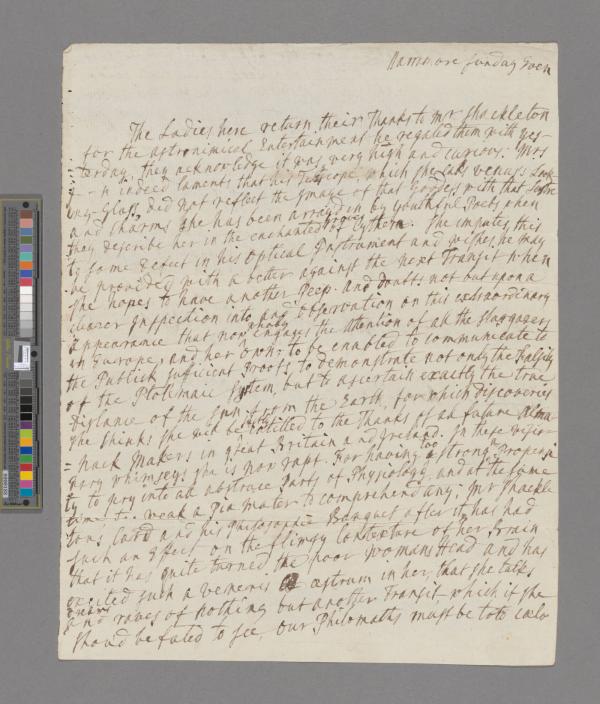 Sunday Even
The Ladies here return their Thanks to Mr Shackleton
for the astronimical Entertainment he regaled them with yes-
-terday, they acknowledge it was very high and curious. Mrs
indeed laments that his Telescope which she calls venus's Look-
ing-Glass, did not reflect the Image of that Goddess with that Lustre
and charms she has been arrayed in by youthful Poets when
they describe her in the enchanted groves of Cythera. She imputes this
to some Defect in his Optical Instrument and wishes he may
be provided with a better against the next Transit when
she hopes to have another Peep and doubts not but upon a
clearer Inspection into and observation on this extraordinary
appearance that now wholly engages the attention of all the stargazers
in Europe, and her to be enabled to communicate to
the Publick suficient Proofs to demonstrate not only the Falsity
of the Ptolemaic System, but to ascertain exactly the true
Distance of the Sun from the Earth, for which discoveries
she thinks she will be entitled to the Thanks of all future Alma
=nack Makers in great Britain and Ireland. In these visio-
nary whimseys she is now rapt. For having too strong a Propensi
ty to pry into all abstruse Parts of Physiology, and at the same
time too weak a pia mater to comprehend any; Mr Shackle
tons Card and his Philosophic Banquet after it, has had
such an effect on the flimsy Contexture of her Brain
that it has quite turned the poor womans Head and has
excited such a veneris œstrum in her, that she talks
and raves of nothing but another Transit which if she
shoud be fated to see, our Philomaths must be toto cœlo